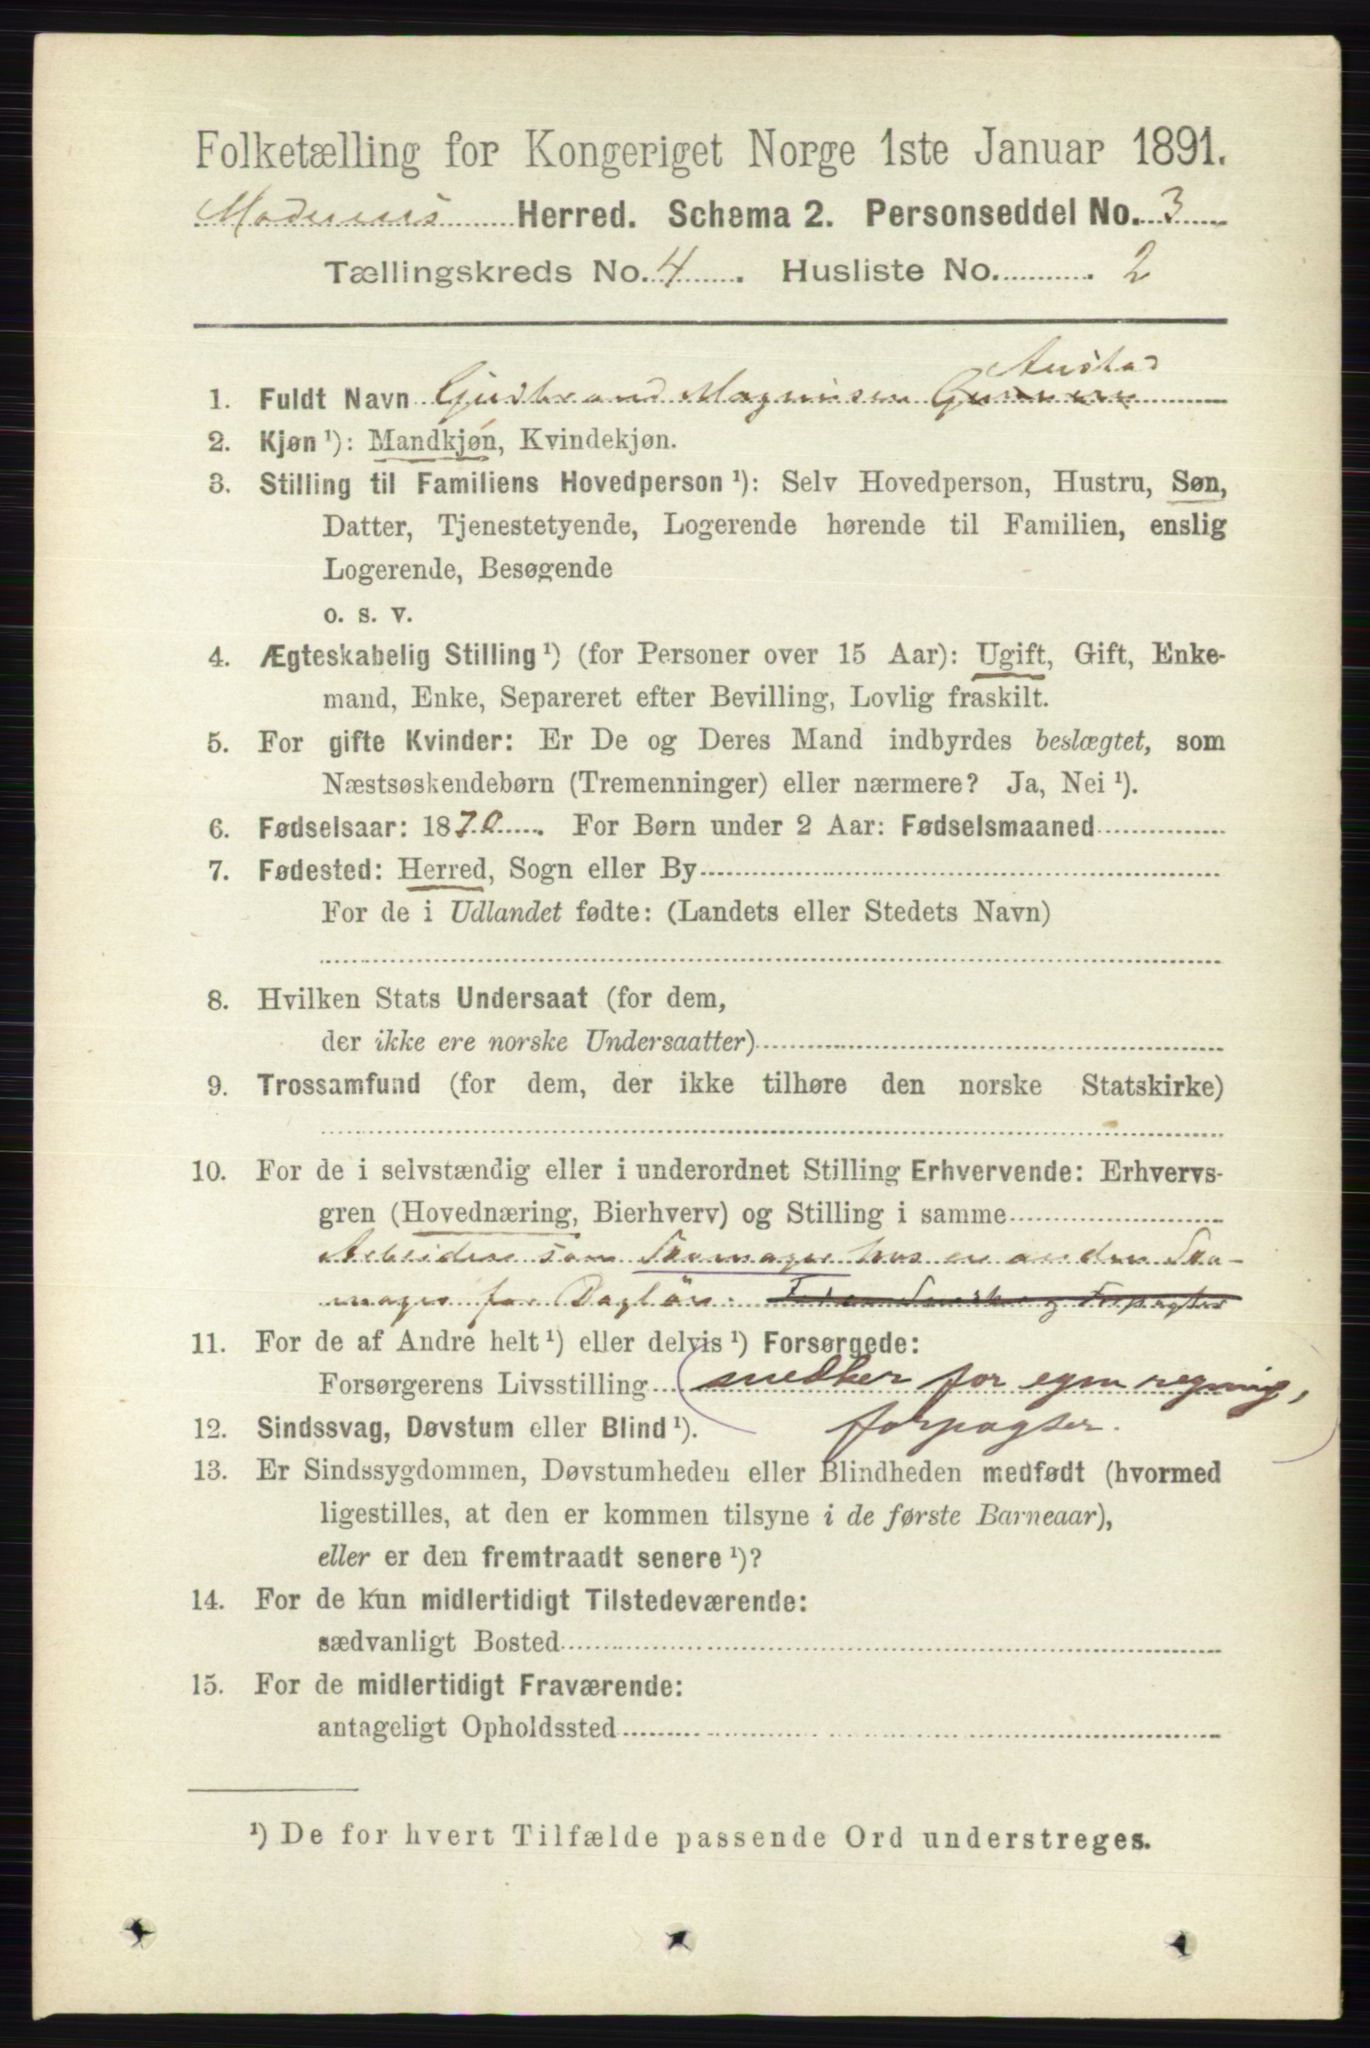 Folketælling for Kongeriget Norge 1ste Januar 1891.
Modums Herred. Schema 2. Personseddel No. 3
Tællingskreds No. 4. Husliste No. 2
Austad
1. Fuldt Navn Gudbrand Magnusen
2. Kjøn ¹): Mandkjøn, Kvindekjøn.
3. Stilling til Familiens Hovedperson ¹): Selv Hovedperson, Hustru, Søn,
Datter, Tjenestetyende, Logerende hørende til Familien, enslig
Logerende, Besøgende
o. s. v.
4. Ægteskabelig Stilling ¹) (for Personer over 15 Aar): Ugift, Gift, Enke-
mand, Enke, Separeret efter Bevilling, Lovlig fraskilt.
5. For gifte Kvinder: Er De og Deres Mand indbyrdes beslægtet, som
Næstsøskendebørn (Tremenninger) eller nærmere? Ja, Nei ¹).
6. Fødselsaar: 1870. For Børn under 2 Aar: Fødselsmaaned
7. Fødested: Herred, Sogn eller By
For de i Udlandet fødte: (Landets eller Stedets Navn)
8. Hvilken Stats Undersaat (for dem,
der ikke ere norske Undersaatter)
9. Trossamfund (for dem, der ikke tilhøre den norske Statskirke)
10. For de i selvstændig eller i underordnet Stilling Erhvervende: Erhvervs-
gren (Hovednæring, Bierhverv) og Stilling i samme
Arbeider som Skomager hos en anden Sko-
mager for Dagløn.
11. For de af Andre helt ¹) eller delvis ¹) Forsørgede:
Forsørgerens Livsstilling (snedker for egen regning,
forpagter.)
12. Sindssvag, Døvstum eller Blind ¹).
13. Er Sindssygdommen, Døvstumheden eller Blindheden medfødt (hvormed
ligestilles, at den er kommen tilsyne i de første Barneaar),
eller er den fremtraadt senere ¹)?
14. For de kun midlertidigt Tilstedeværende:
sædvanligt Bosted
15. For de midlertidigt Fraværende:
antageligt Opholdssted
¹) De for hvert Tilfælde passende Ord understreges.